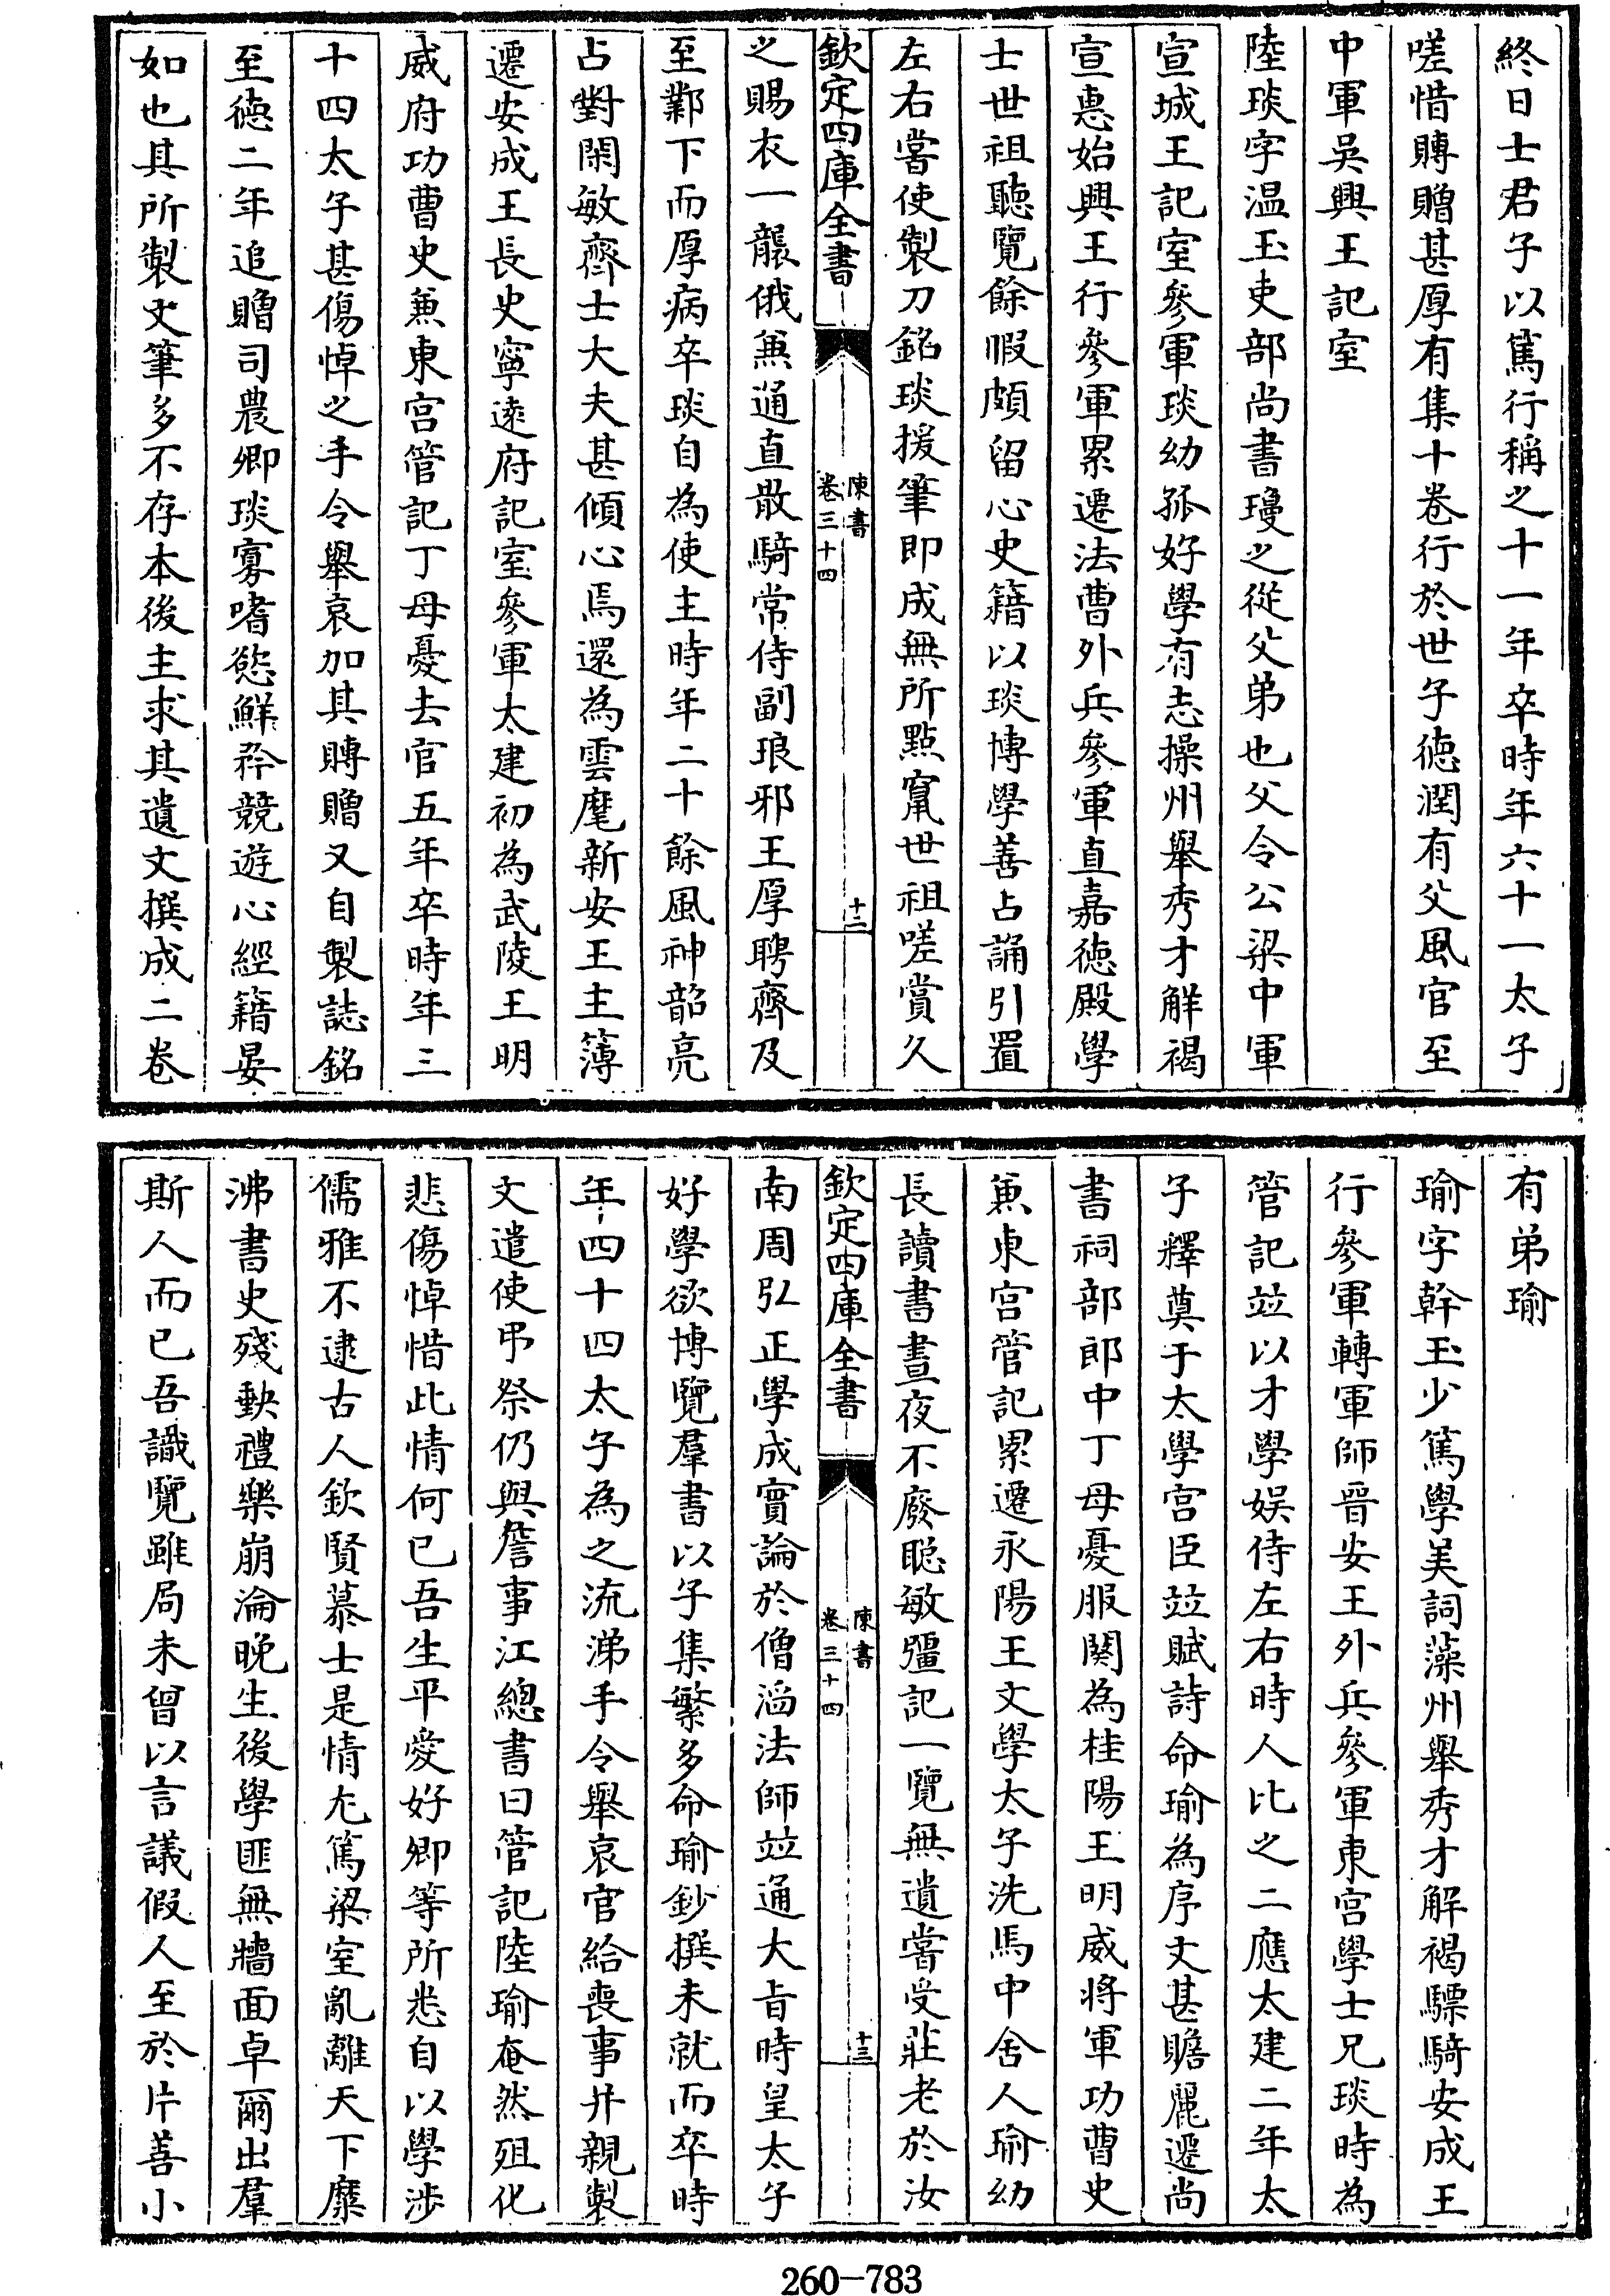 終日士君子以篤行稱之十一年卒時年六十一太子
嗟惜賻贈甚厚有集十卷行於世子徳潤有父風官至
中軍吳興王記室
陸琰字温玉吏部尚書瓊之從父弟也父令公梁中軍
宣城王記室參軍琰幼孤好學有志操州舉秀才解褐
宣惠始興王行參軍累遷法曹外兵參軍直嘉徳殿學
士世祖聽覽餘暇頗留心史籍以琰博學善占誦引置
左右嘗使製刀銘琰援筆即成無所點竄世祖嗟賞久
欽定四庫全書
陳書
卷三十四
十二
之賜衣一襲俄兼通直散騎常侍副琅邪王厚聘齊及
至鄴下而厚病卒琰自為使主時年二十餘風神韶亮
占對閑敏齊士大夫甚傾心焉還為雲麾新安王主簿
遷安成王長史寧逺府記室參軍太建初為武陵王明
威府功曹史兼東宫管記丁母憂去官五年卒時年三
十四太子甚傷悼之手令舉哀加其賻贈又自製誌銘
至徳二年追贈司農卿琰寡嗜慾鮮矜競遊心經籍晏
如也其所製文筆多不存本後主求其遺文撰成二卷
有弟瑜
瑜字幹玉少篤學美詞藻州舉秀才解褐驃騎安成王
行參軍轉軍師晉安王外兵參軍東宫學士兄琰時為
管記竝以才學娱侍左右時人比之二應太建二年太
子釋奠于太學宫臣竝賦詩命瑜為序文甚贍麗遷尚
書祠部郎中丁母憂服闋為桂陽王明威将軍功曹史
兼東宫管記累遷永陽王文學太子洗馬中舍人瑜幼
長讀書晝夜不廢聪敏彊記一覽無遺嘗受莊老於汝
欽定四庫全書
陳書
卷三十四
十三
南周弘正學成實論於僧滔法師竝通大㫖時皇太子
好學欲博覽羣書以子集繁多命瑜鈔撰未就而卒時
年四十四太子為之流涕手令舉哀官給喪事并親製
文遣使弔祭仍與詹事江總書曰管記陸瑜奄然殂化
悲傷悼惜此情何已吾生平愛好卿等所悉自以學渉
儒雅不逮古人欽賢慕士是情尤篤梁室亂離天下靡
沸書史殘缺禮樂崩淪晚生後學匪無牆面卓爾出羣
斯人而已吾識覽雖局未曾以言議假人至於片善小
260-783